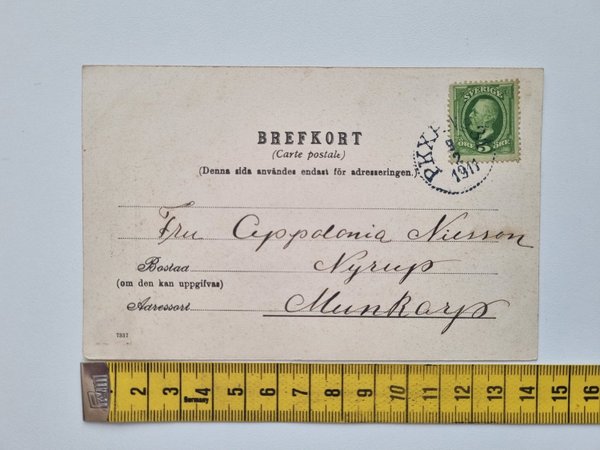 SVERIGE
5
ÖRE ÖRE
PKXP
9
2
1911
BREFKORT
(Carte postale)
(Denna sida användes endast för adresseringen.)
Fru Appolonia Nilsson
Bostad Nyrup
(om den kan uppgifvas)
Adressort Munkarp
7337
1 2 3 4 5 6 7 8 9 10 11 12 13 14 15 16
Germany